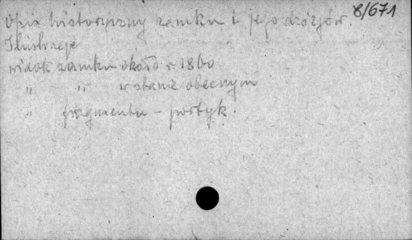 8/671
Opis historyczny zamku i jego dziejów.
Ilustracje
widok zamku około r. 1860
" " w stanie obecnym
" fragmentu - portyk.